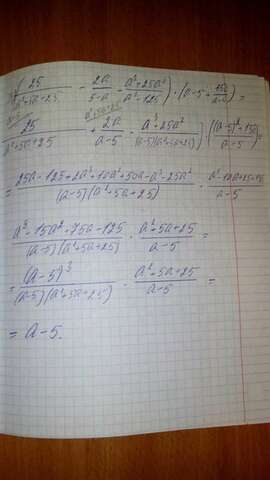 (25/(a²+5a+25) - 2a/(5-a) - (a³+25a²)/(a³-125)) · (a-5+15a/(a-5)) =
25/(a²+5a+25) + 2a/(a-5) - (a³+25a²)/((a-5)(a²+5a+25)) · ((a-5)²+15a)/(a-5)
= (25a-125+2a³+10a²+50a-a³-25a²)/((a-5)(a²+5a+25)) · (a²-10a+25+15a)/(a-5)
(a³-15a²+75a-125)/((a-5)(a²+5a+25)) · (a²+5a+25)/(a-5) =
= (a-5)³/((a-5)(a²+5a+25)) · (a²+5a+25)/(a-5) =
= a-5.